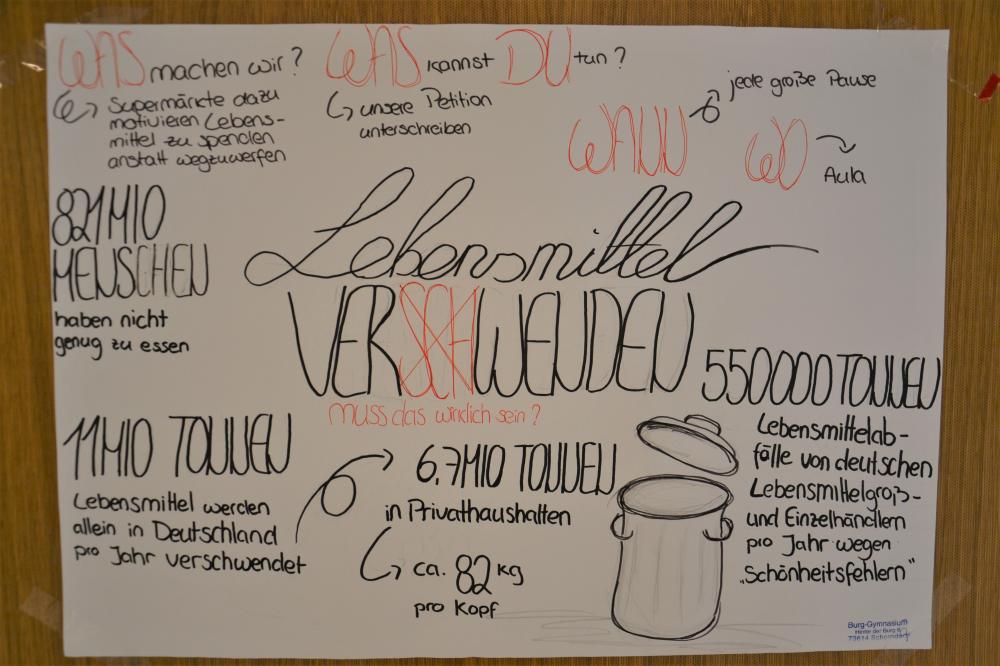 WAS machen wir?
Supermärkte dazu
motivieren Lebens-
mittel zu spenden
anstatt wegzuwerfen
WAS kannst DU tun?
unsere Petition
unterschreiben
WANN
jede große Pause
WO
Aula
821 MIO
MENSCHEN
haben nicht
genug zu essen
Lebensmittel
VERSCHWENDEN
muss das wirklich sein?
11 MIO TONNEN
Lebensmittel werden
allein in Deutschland
pro Jahr verschwendet
6,7 MIO TONNEN
in Privathaushalten
ca. 82 kg
pro Kopf
550000 TONNEN
Lebensmittelab-
fälle von deutschen
Lebensmittelgroß-
und Einzelhändlern
pro Jahr wegen
„Schönheitsfehlern"
Burg-Gymnasium
Hinter der Burg
73614 Schorndorf